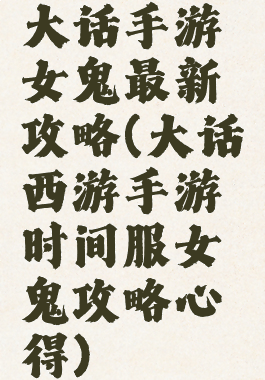 大话手游
女鬼最新
攻略(大话
西游手游
时间服女
鬼攻略心
得)